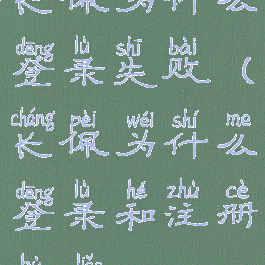 长佩为什么
dēng lù shī bài
登录失败（
cháng pèi wéi shí me
长佩为什么
dēng lù hé zhù cè
登录和注册
bù liǎo